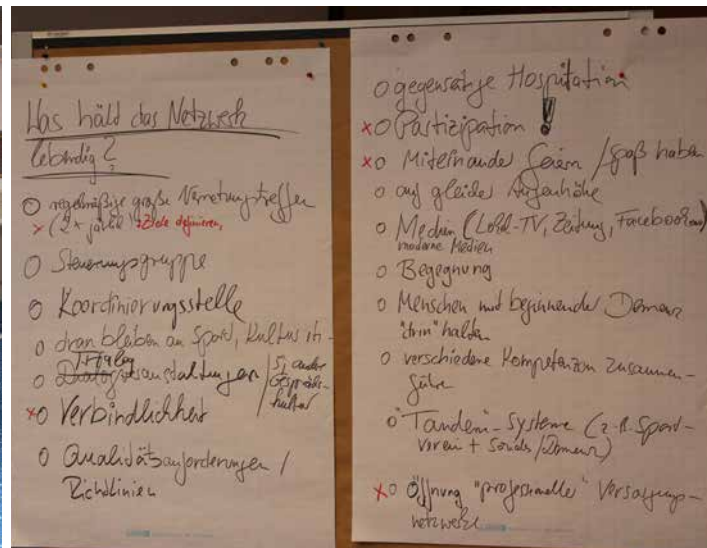 Was hält das Netzwerk
lebendig?
O regelmäßige große Vernetungstreffen
x (2x jährl.) Ziele definieren,
O Steuerungsgruppe
O Koordinierungsstelle
O dran bleiben an Sport, Kultur
O Dialogveranstaltungen /
xO Verbindlichkeit
O Qualitätsanforderungen /
Richtlinien
O gegenseitige Hospitation
xO Partizipation !
xO Miteinander feiern / Spaß haben
O auf gleicher Augenhöhe
O Medien (Lokal-TV, Zeitung, Facebook
moderne Medien
O Begegnung
O Menschen mit beginnender Demenz
"drin" halten
O verschiedene Kompetenzen zusammen-
führen
O "Tandem"-Systeme (z.B. Sport-
verein + Soziales/Demenz)
xO Öffnung "professioneller" Versorgungs-
netzwerke